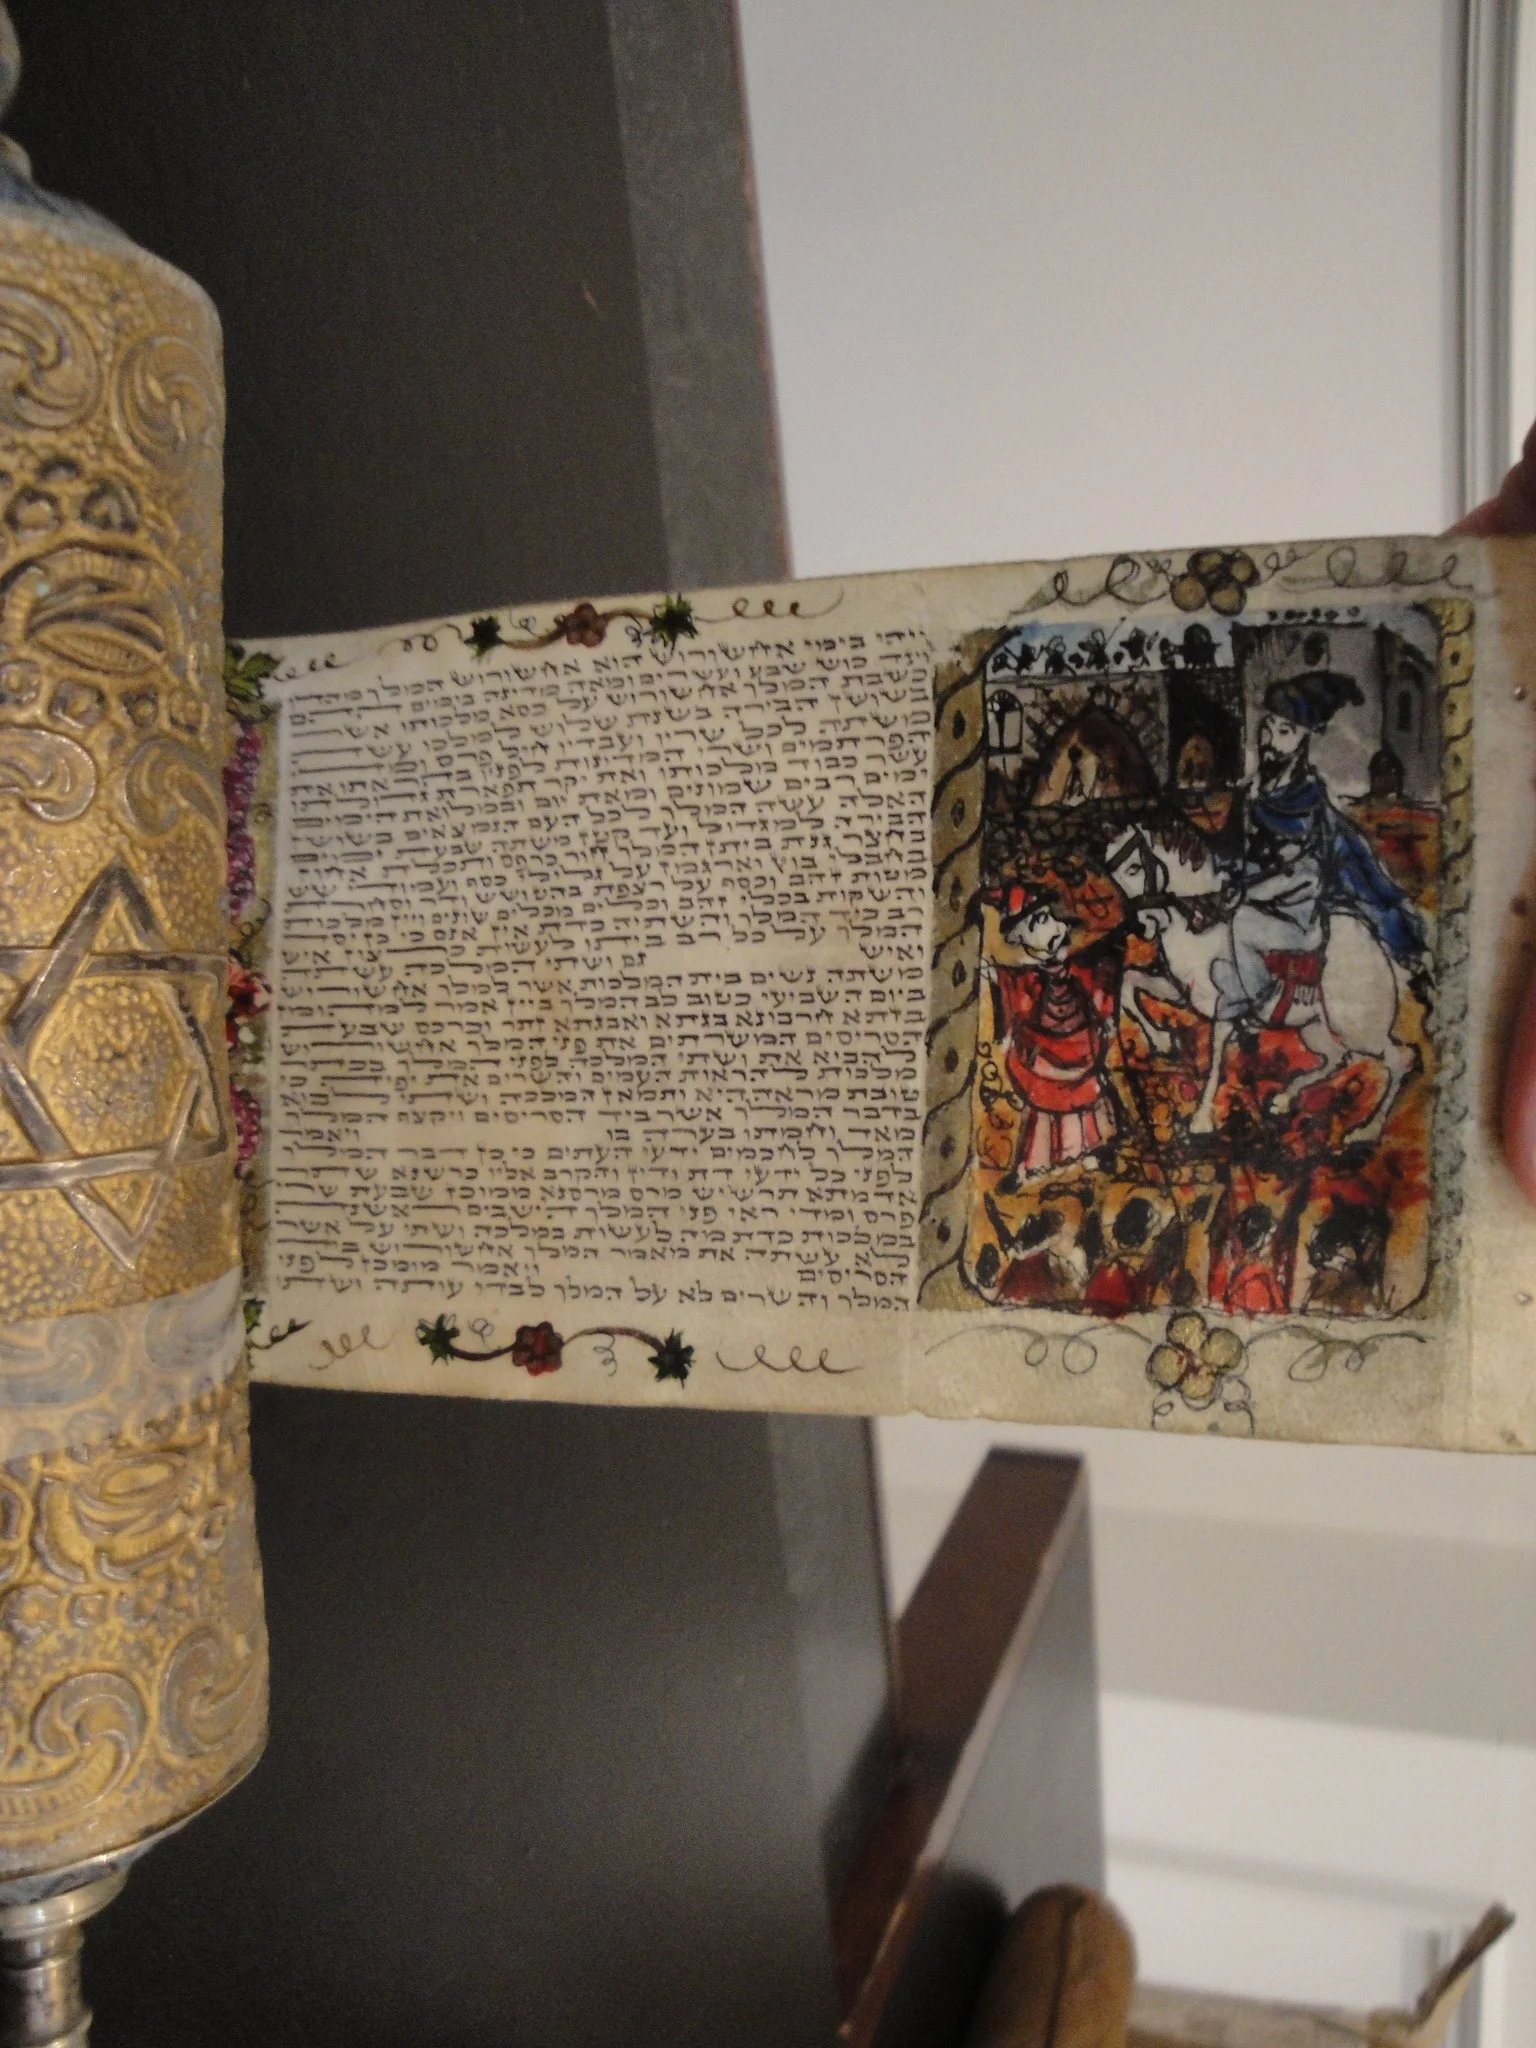 ויהי בימי אחשורוש הוא אחשורוש המלך מהדו
ועד כוש שבע ועשרים ומאה מדינה בימים ההם
כשבת המלך אחשורוש על כסא מלכותו אשר
בשושן הבירה בשנת שלוש למלכו עשה
משתה לכל שריו ועבדיו חיל פרס ומדי
הפרתמים ושרי המדינות לפניו בהראתו את
עשר כבוד מלכותו ואת יקר תפארת גדולתו
ימים רבים שמונים ומאת יום ובמלואת הימים
האלה עשה המלך לכל העם הנמצאים בשושן
הבירה למגדול ועד קטן משתה שבעת ימים
בחצר גנת ביתן המלך חור כרפס ותכלת אחוז
בחבלי בוץ וארגמן על גלילי כסף ועמודי שש
מטות זהב וכסף על רצפת בהט ושש
והשקות בכלי זהב וכלים מכלים שונים ויין מלכות
רב כיד המלך והשתיה כדת אין אנס כי כן יסד
המלך על כל רב ביתו לעשות כרצון איש
ואיש גם ושתי המלכה עשתה
משתה נשים בית המלכות אשר למלך אחשורוש
ביום השביעי כטוב לב המלך ביין אמר למהומן
בזתא חרבונא בגתא ואבגתא זתר וכרכס שבעת
הסריסים המשרתים את פני המלך אחשורוש
להביא את ושתי המלכה לפני המלך בכתר
מלכות להראות העמים והשרים את יפיה כי
טובת מראה היא ותמאן המלכה ושתי לבוא
בדבר המלך אשר ביד הסריסים ויקצף המלך
מאד וחמתו בערה בו ויאמר
המלך לחכמים ידעי העתים כי כן דבר המלך
לפני כל ידעי דת ודין והקרב אליו כרשנא שתר
אדמתא תרשיש מרס מרסנא ממוכן שבעת שרי
פרס ומדי ראי פני המלך הישבים ראשנה
במלכות כדת מה לעשות במלכה ושתי על אשר
לא עשתה את מאמר המלך אחשורוש ביד
הסריסים ויאמר מומכן לפני
המלך והשרים לא על המלך לבדו עותה ושתי